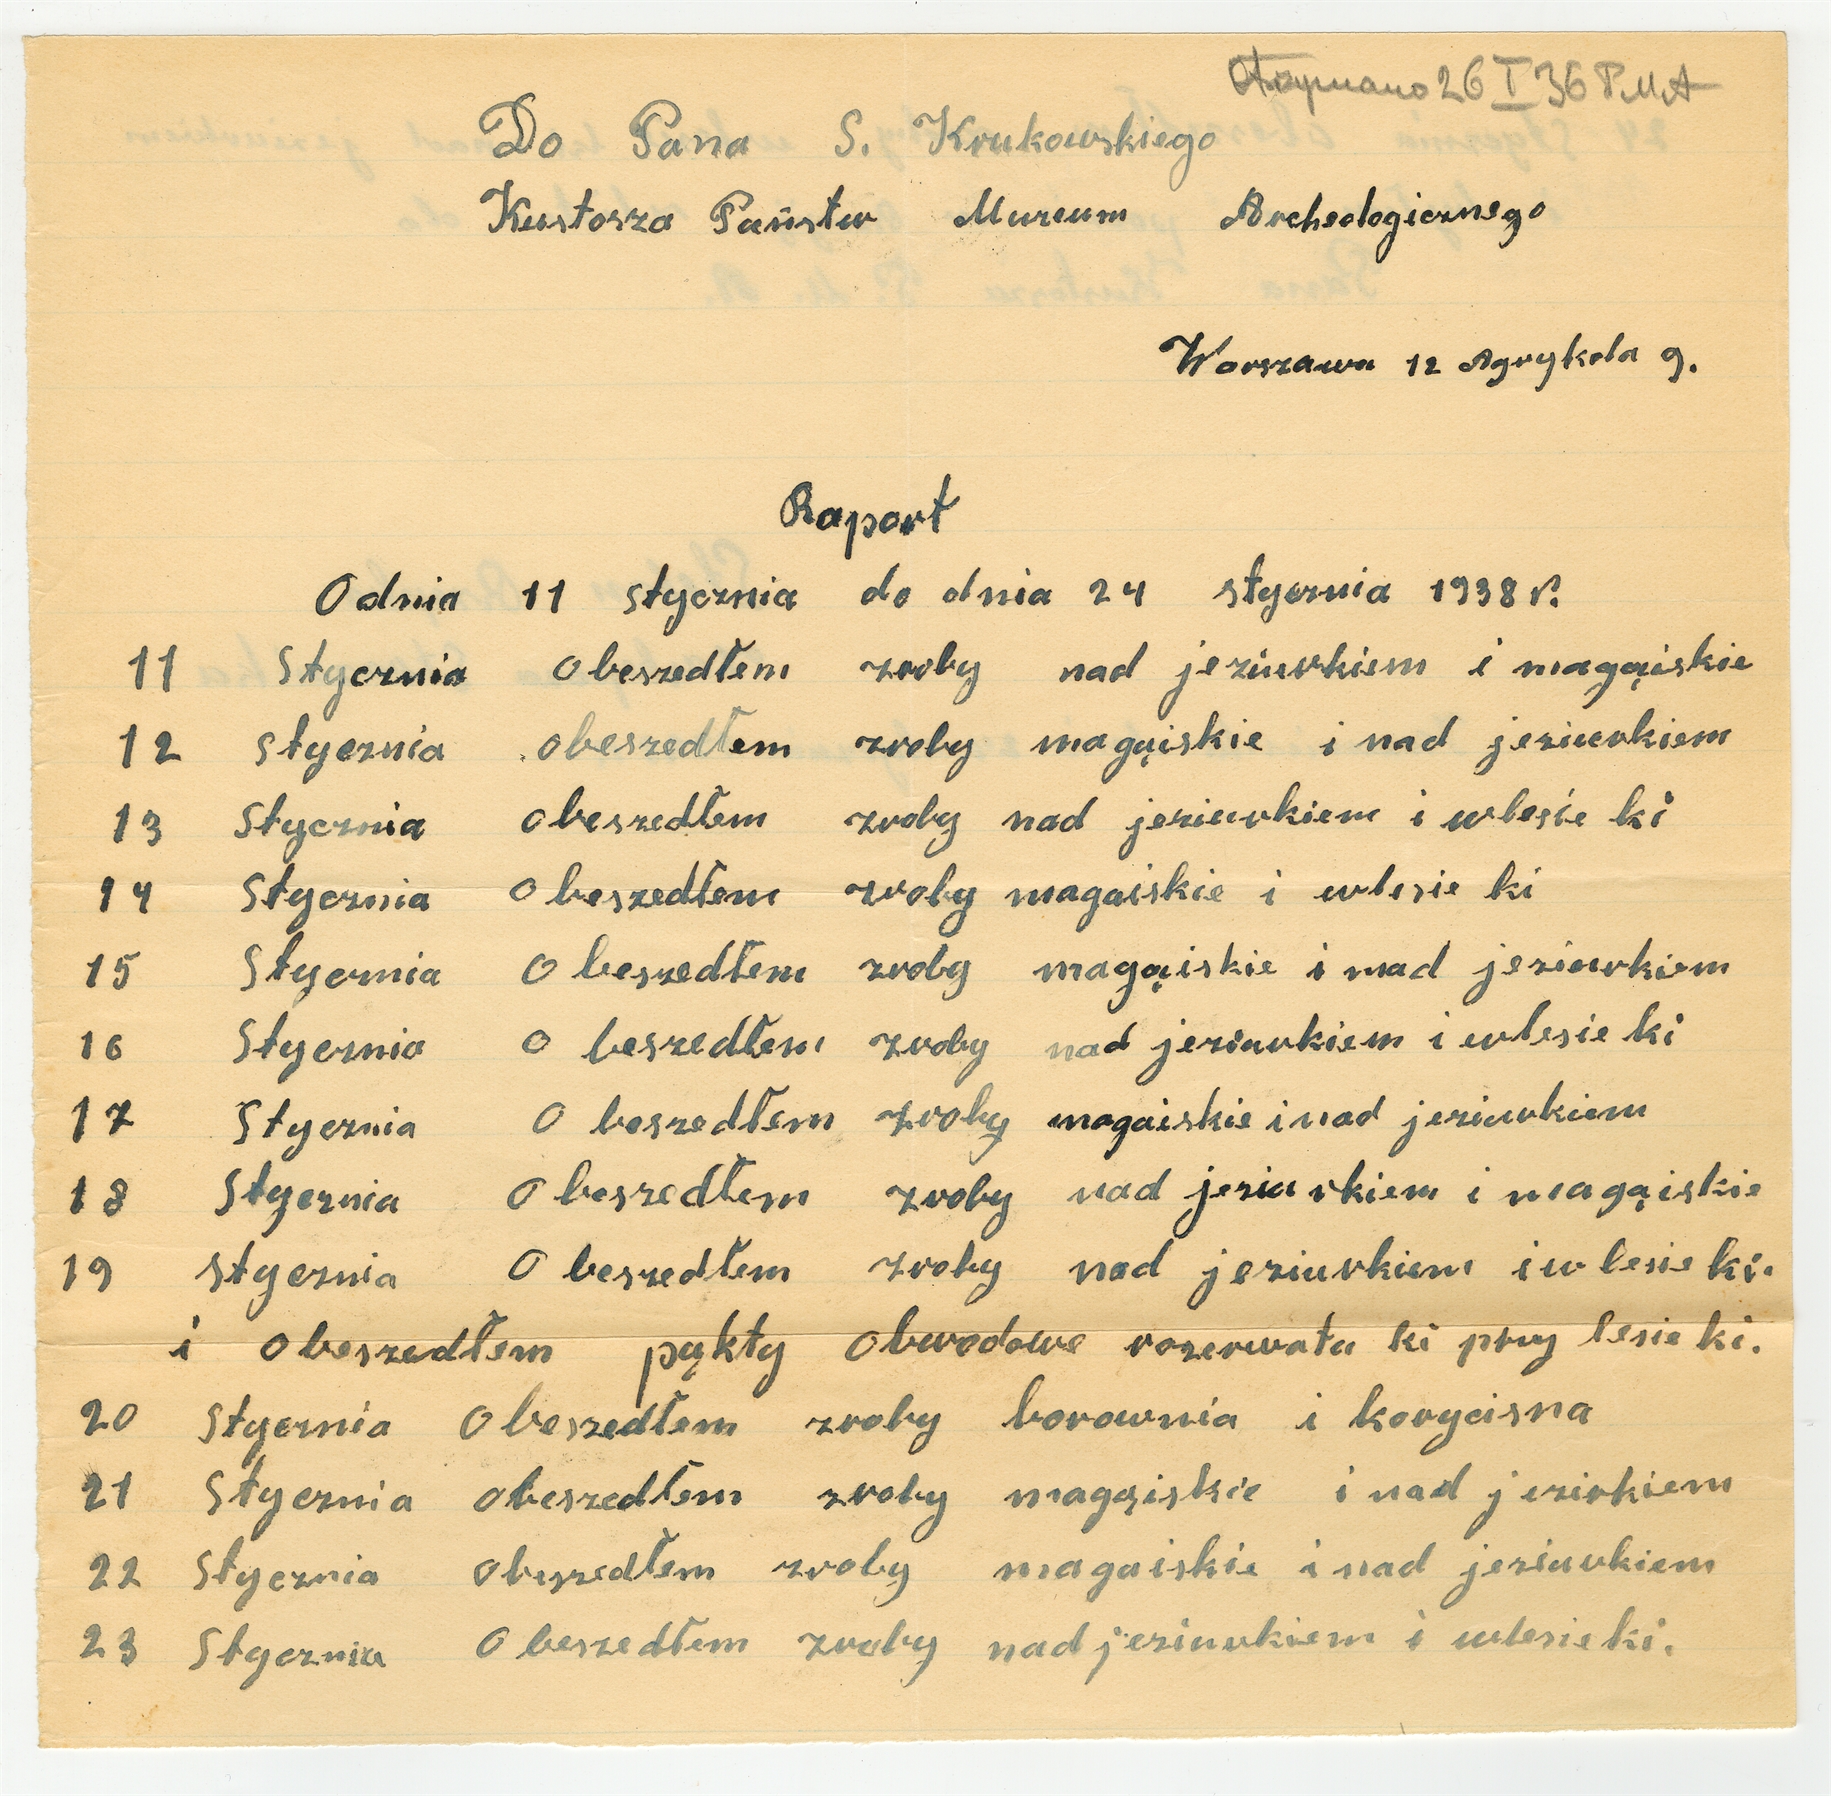 Otrzymano 26 I 36 P.M.A
Do Pana S. Krukowskiego
Kustosza Państw Muzeum Archeologicznego
Warszawa 12 Agrykola 9.
Raport
Odnia 11 stycznia do dnia 24 stycznia 1938 r.
11 Stycznia obeszedłem zroby nad jeziurkiem i magąiskie
12 stycznia obeszedłem zroby magąiskie i nad jeziurkiem
13 Stycznia obeszedłem zroby nad jeziurkiem i wlesie ki
14 Stycznia obeszedłem zroby magaiskie i wlesie ki
15 Stycznia obeszedłem zroby magąiskie i nad jeziurkiem
16 Stycznia o beszedłem zroby nad jeziurkiem i wlesie ki
17 Stycznia o beszedłem zroby magaiskie i nad jeziurkiem
18 Stycznia obeszedłem zroby nad jeziurkiem i magąiskie
19 stycznia obeszedłem zroby nad jeziurkiem i w lesie ki.
i obeszedłem pąkty obwodowe rezerwatu ki przy lesie ki.
20 stycznia obeszedłem zroby borownia i korycisna
21 Stycznia obeszedłem zroby magąiskie i nad jezirkiem
22 stycznia obeszedłem zroby magaiskie i nad jeziurkiem
23 Stycznia obeszedłem zroby nad jeziurkiem i wlesie ki.